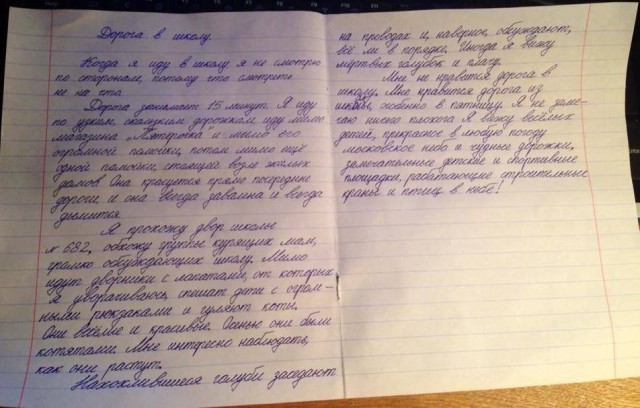 Дорога в школу.
Когда я иду в школу я не смотрю
по сторонам, потому что смотреть
не на что.
Дорога занимает 15 минут. Я иду
по узким, скользким дорожкам, иду мимо
магазина "Пятерочка" и мимо его
огромной помойки, потом мимо ещё
одной помойки, стоящей возле жилых
домов. Она красуется прямо посередине
дороги и она всегда завалена и всегда
дымится.
Я прохожу двор школы
№ 682, обхожу группы курящих мам,
громко обсуждающих школу. Мимо
идут дворники с лопатами, от которых
я уворачиваюсь, спешат дети с огром-
ными рюкзаками и гуляют коты.
Они весёлые и красивые. Осенью они были
котятами. Мне интересно наблюдать,
как они растут.
Нахохлившиеся голуби заседают
на проводах и, наверное, обсуждают,
всё ли в порядке. Иногда я вижу
мёртвых голубок и плачу.
Мне не нравится дорога в
школу. Мне нравится дорога из
школы, особенно в пятницу. Я не заме-
чаю ничего плохого. Я вижу весёлых
детей, прекрасное в любую погоду
московское небо и чудные дорожки,
замечательные детские и спортивные
площадки, работающие строительные
краны и птиц в небе!